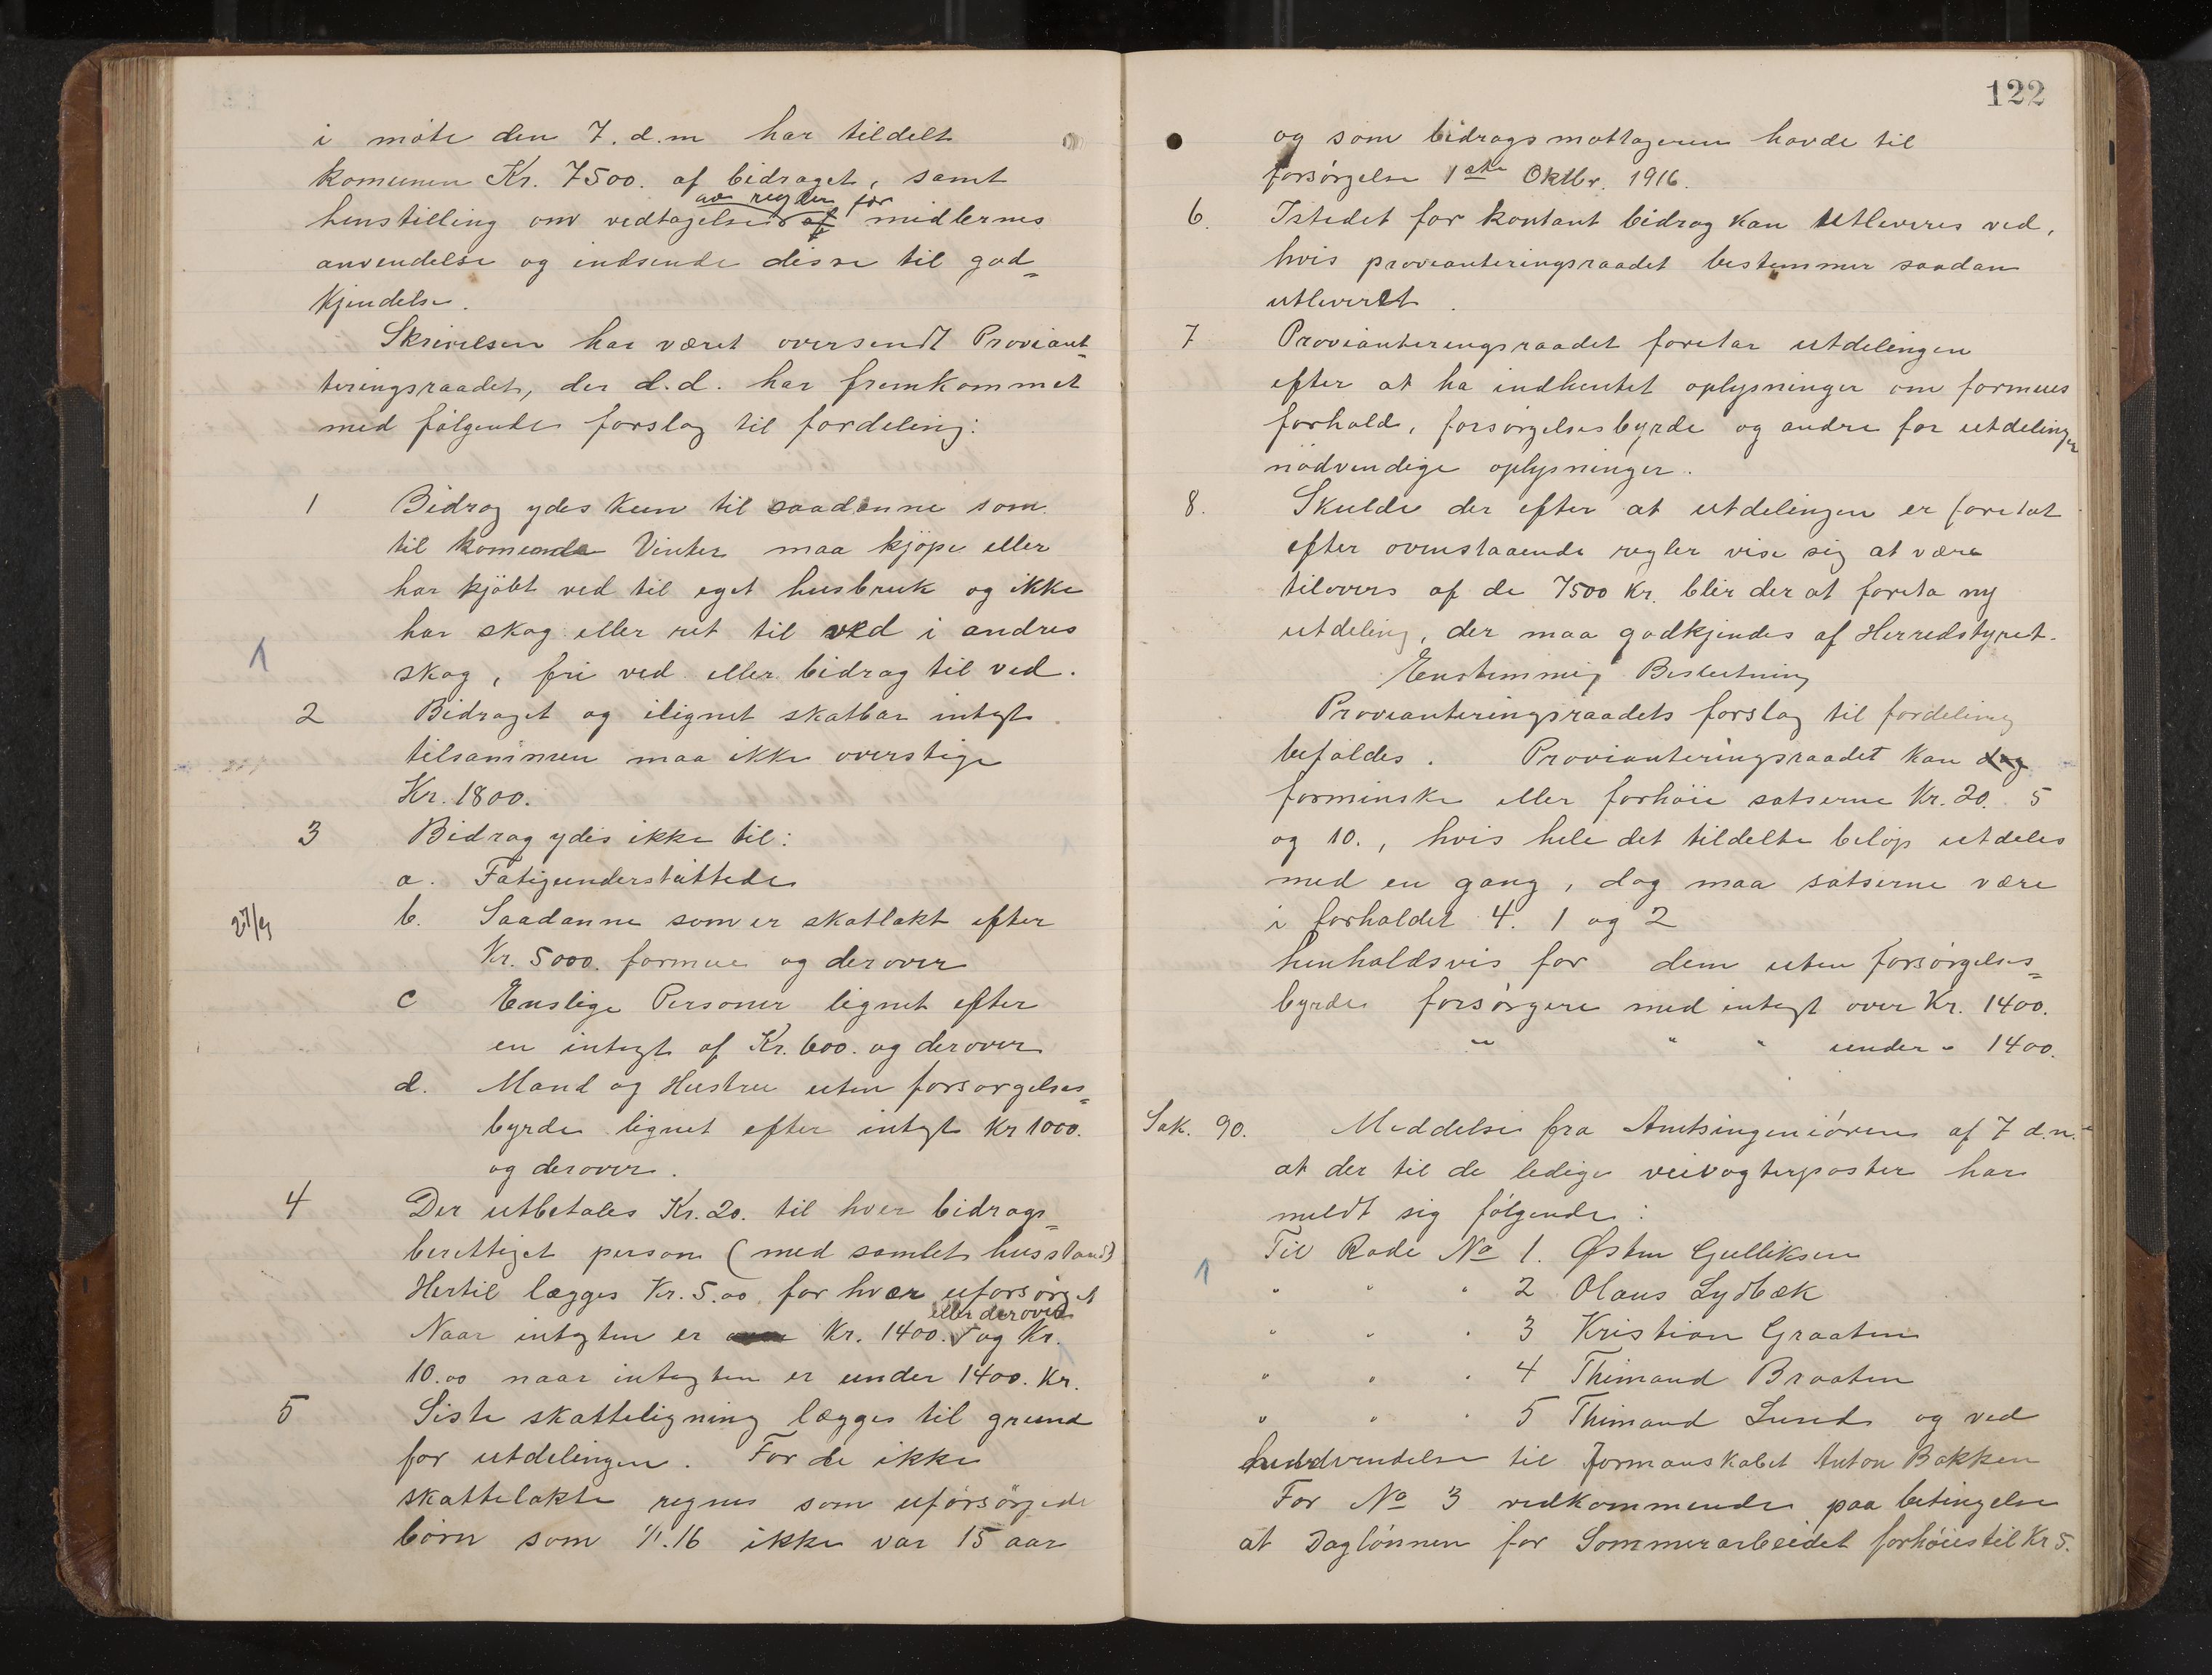 i möte den 7. d.m har tildelt
komunen Kr. 7500. af bidraget, samt
av regler for
henstilling om vedtagelse af midlernes
anvendelse og indsende disse til god=
kjendelse.
Skrivelsen har været oversendt Proviant=
teringsraadet, der d.d. har fremkommet
med følgende forslag til fordeling:
1 Bidrag ydes kun til saadanne som
til komende Vinter maa kjöpe eller
har kjöbt ved til eget husbruk og ikke
har skog eller ret til ved i andres
skog, fri ved eller bidrag til ved.
2 Bidraget og ilignet skatbar intægt
tilsammen maa ikke overstige
Kr. 1800.
3 Bidrag ydes ikke til:
a. Fatigunderstöttede
27/9 b. Saadanne som er skatlakt efter
Kr. 5000. formue og derover
c Enslige Personer lignet efter
en intægt af Kr. 600. og derover
d. Mand og Hustru uten forsorgelses=
byrde lignet efter intægt Kr 1000.
og derover.
4 Der utbetales Kr. 20. til hver bidrags=
berettiget person (med samlet husstand)
Hertil lægges Kr. 5.00 for hver uforsørget
eller derover
Naar intægten er Kr. 1400. og Kr.
10.00 naar intægten er under 1400. Kr.
5 Siste skatteligning lægges til grund
for utdelingen. For de ikke
skattelakte regnes som uforsörgede
börn som 1/1.16 ikke var 15 aar
122
og som bidragsmottageren havde til
forsörgelse 1ste Oktbr. 1916.
6. Istedet for kontant bidrag kan utleveres ved,
hvis provianteringsraadet bestemmer saadan
utleveret.
7 Provianteringsraadet foretar utdelingen
efter at ha indhentet oplysninger om formues
forhold, forsörgelsesbyrde og andre for utdelingen
nödvendige oplysninger.
8. Skulde der efter at utdelingen er foretat
efter ovenstaaende regler vise sig at være
tilovers af de 7500 Kr. blir der at foreta ny
utdeling, der maa godkjendes af Herredstyret.
Enstemmig Beslutning
Provianteringsraadets forslag til fordeling
befaldes. Provianteringsraadet kan dog
forminske eller forhöie satserne Kr. 20. 5
og 10., hvis hele det tildelte belöp utdeles
med en gang, dog maa satserne være
i forholdet 4. 1 og 2
henholdsvis for dem uten forsörgelses=
byrde forsörgere med intægt over Kr. 1400.
" " " under " 1400.
Sak. 90. Meddelse fra Amtsingeniören af 7 d.m.
at der til de ledige veivogterposter har
meldt sig fölgende:
Til Rode No 1. Østen Gulliksen
" " " 2 Olaus Lydbæk
" " " 3 Kristian Graaten
" " " 4 Thimand Braaten
" " " 5 Thimand Lund og ved
hendvendelse til Formanskabet Anton Bakken
For No 3 vedkommende paa betingelse
at Daglönnen for Sommerarbeidet forhöies til Kr 5.